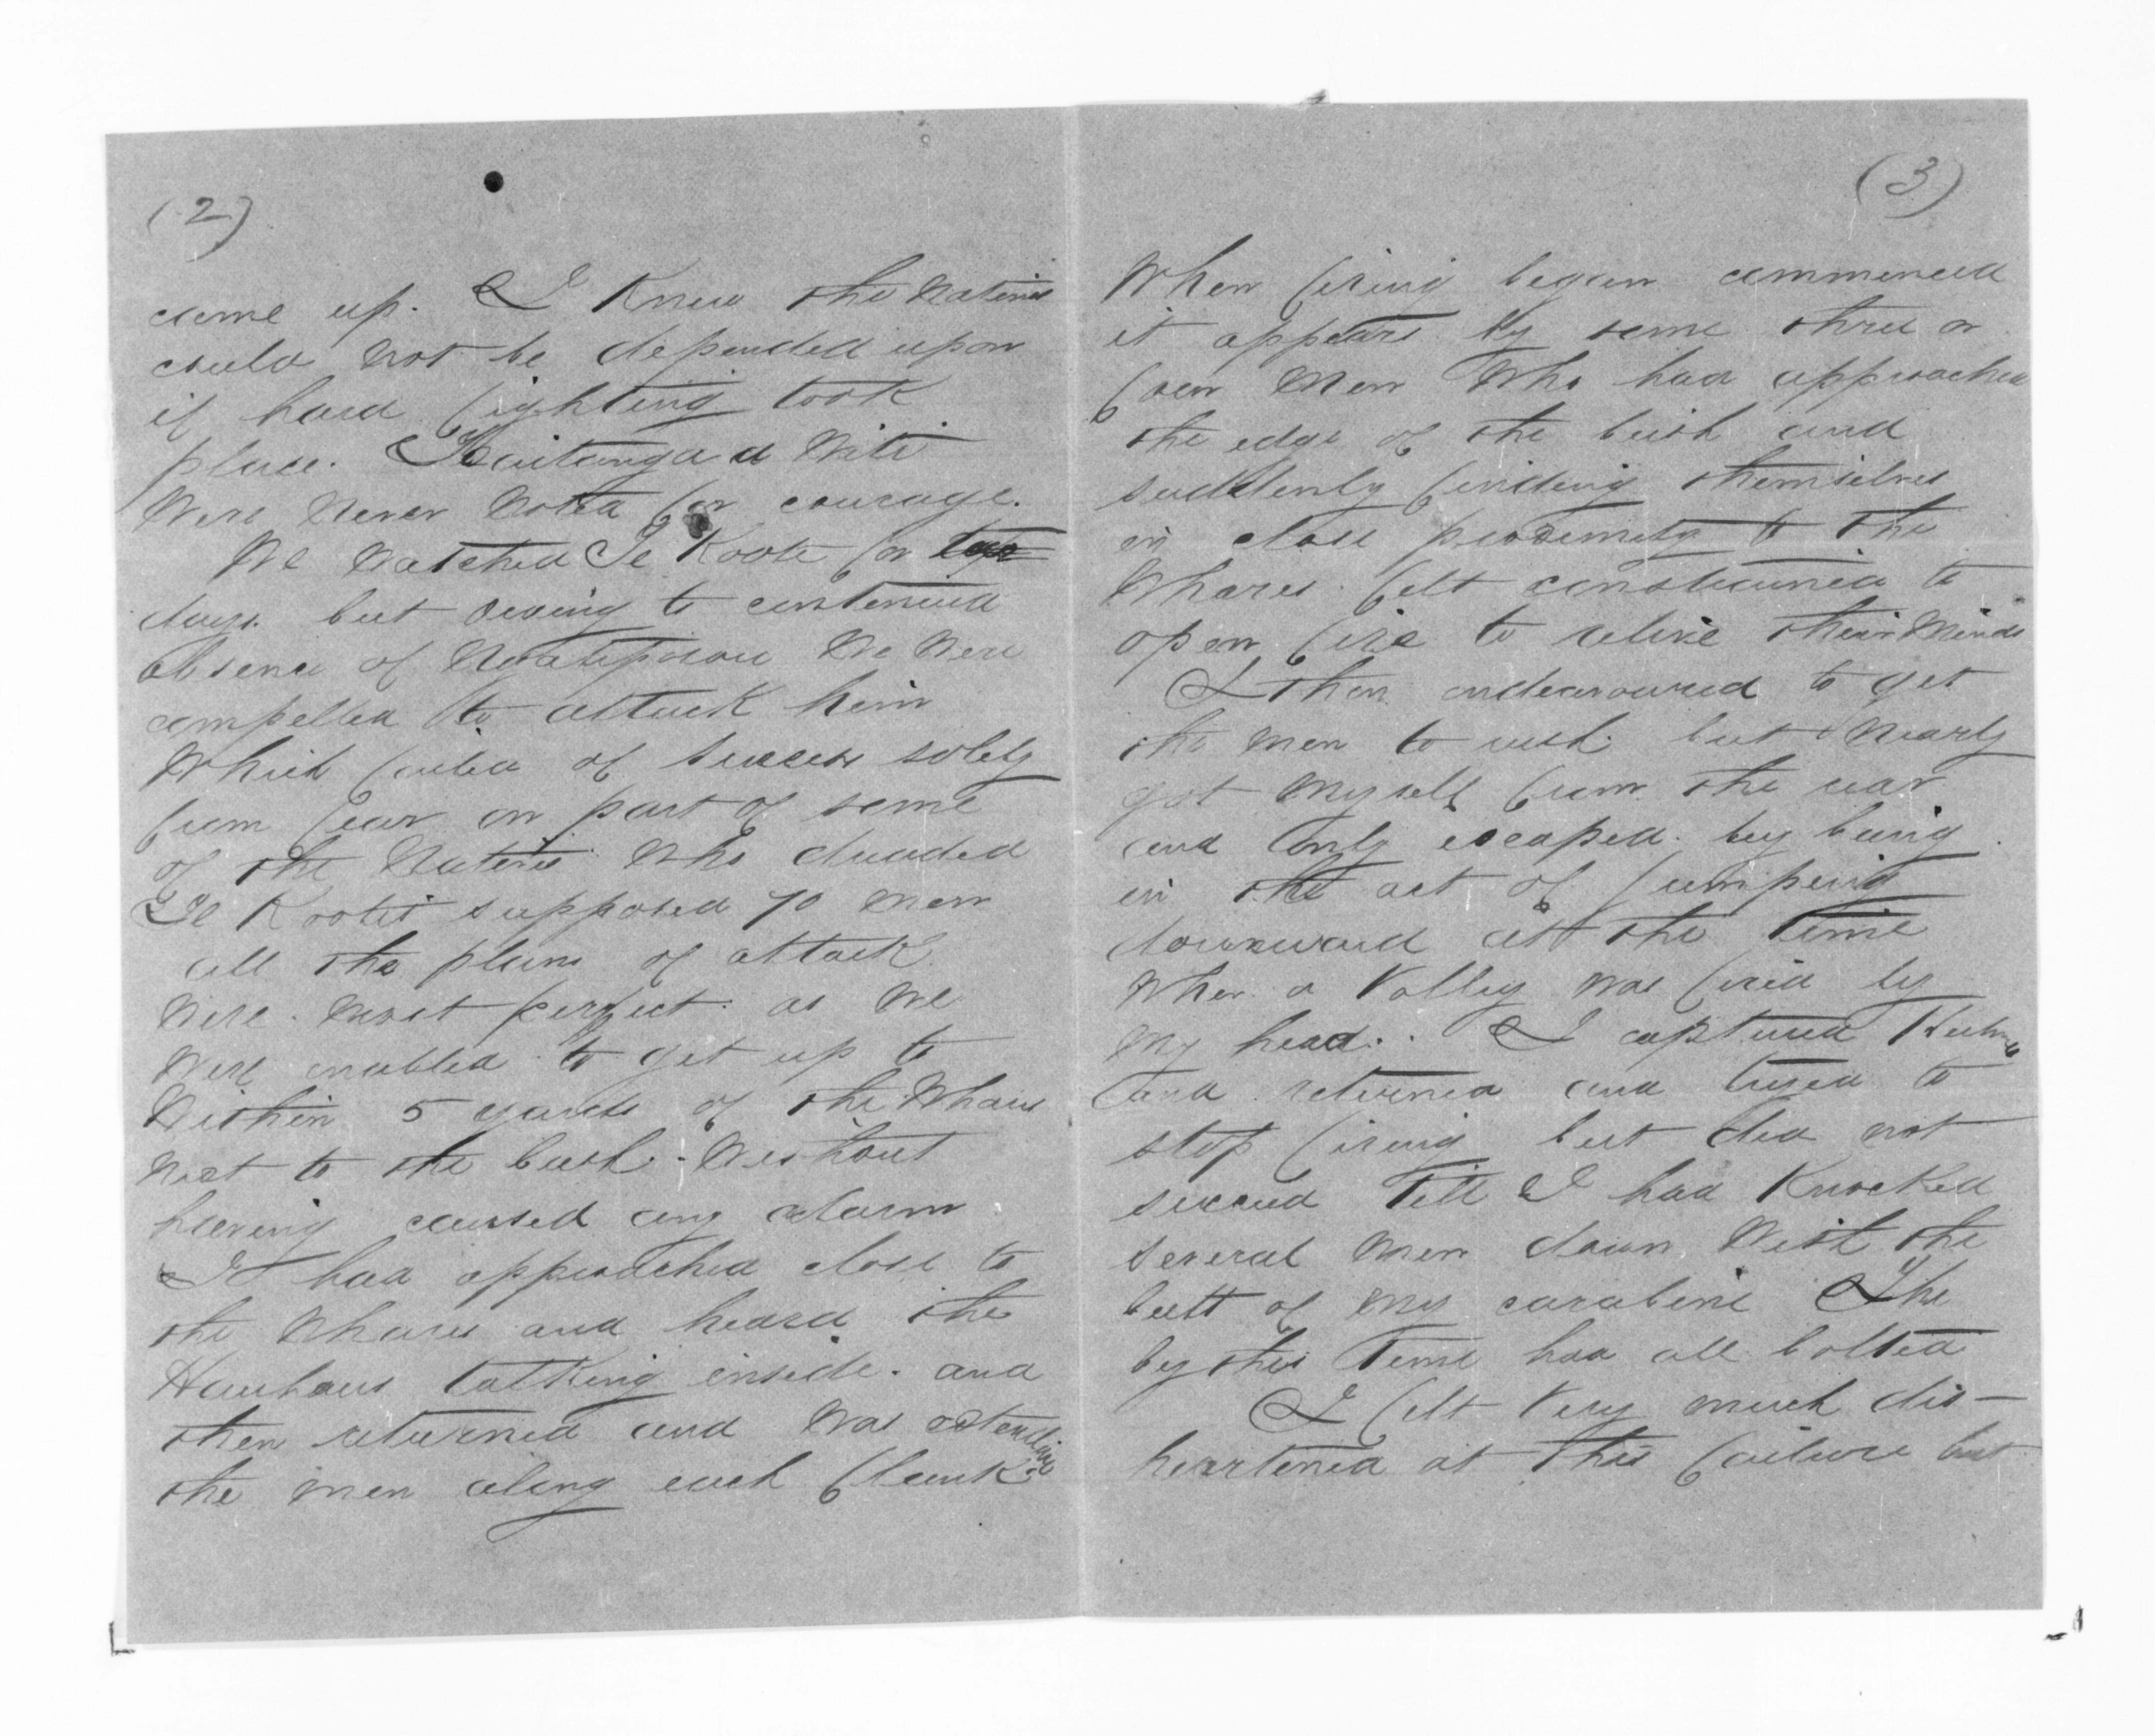 (2)
came up. I Knew the Natives
could not be depended upon
if hard fighting took
place.
Were Never Noted for courage.
We Watched Te Kooti for
days. but owing to continued
absence of Ngatiporou We Were
compelled to attack him
Which failed of success solely
from fear on part of some
of the Natives Who dreaded
Te Kooti's supposed 70 men
all the plans of attack
Were most perfect. as We
Were enabled to get up to
Within 5 yards of the Whares
Next to the bush. Without
having caused any alarm
I had approached close to
the Whares and heard the
Hauhaus talking inside. and
then returned and Was extending
the men along each flank
(3)
When firing began commenced
it appears by some three or
four Men Who had approached
the edge of the bush and
suddenly finding themselves
in close proximity to the
Whares. felt constrained to
open fire to relieve their Minds
I then endeavoured to get
the men to rush. but Nearly
got Myself from the rear
and only escaped. by being
in the act of jumping
downward at the time
When a Volley Was fired by
My head. I captured
and returned and tryed to
stop firing but did not
succeed Till I had Knocked
several Men down With the
butt of My carabine The
by this Time had all bolted
I felt Very much dis-
heartened at this failure but